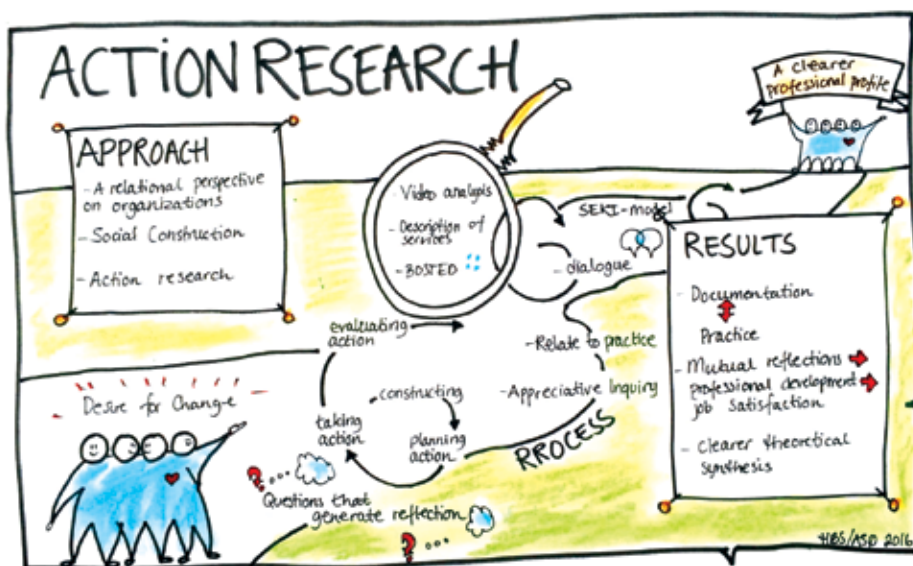 ACTION RESEARCH
A clearer
professional profile
APPROACH
- A relational perspective
on organizations
- Social Construction
- Action research
- Video analysis
- Description of
services
- BOSTED
SEKI-model
- dialogue
- Relate to practice
- Appreciative Inquiry
PROCESS
evaluating
action
constructing
planning
action
taking
action
Desire for Change
? ...
Questions that
generate reflection
? ...
RESULTS
- Documentation
Practice
- Mutual reflections
professional development
job satisfaction
- Clearer theoretical
synthesis
HBS/ASØ 2016